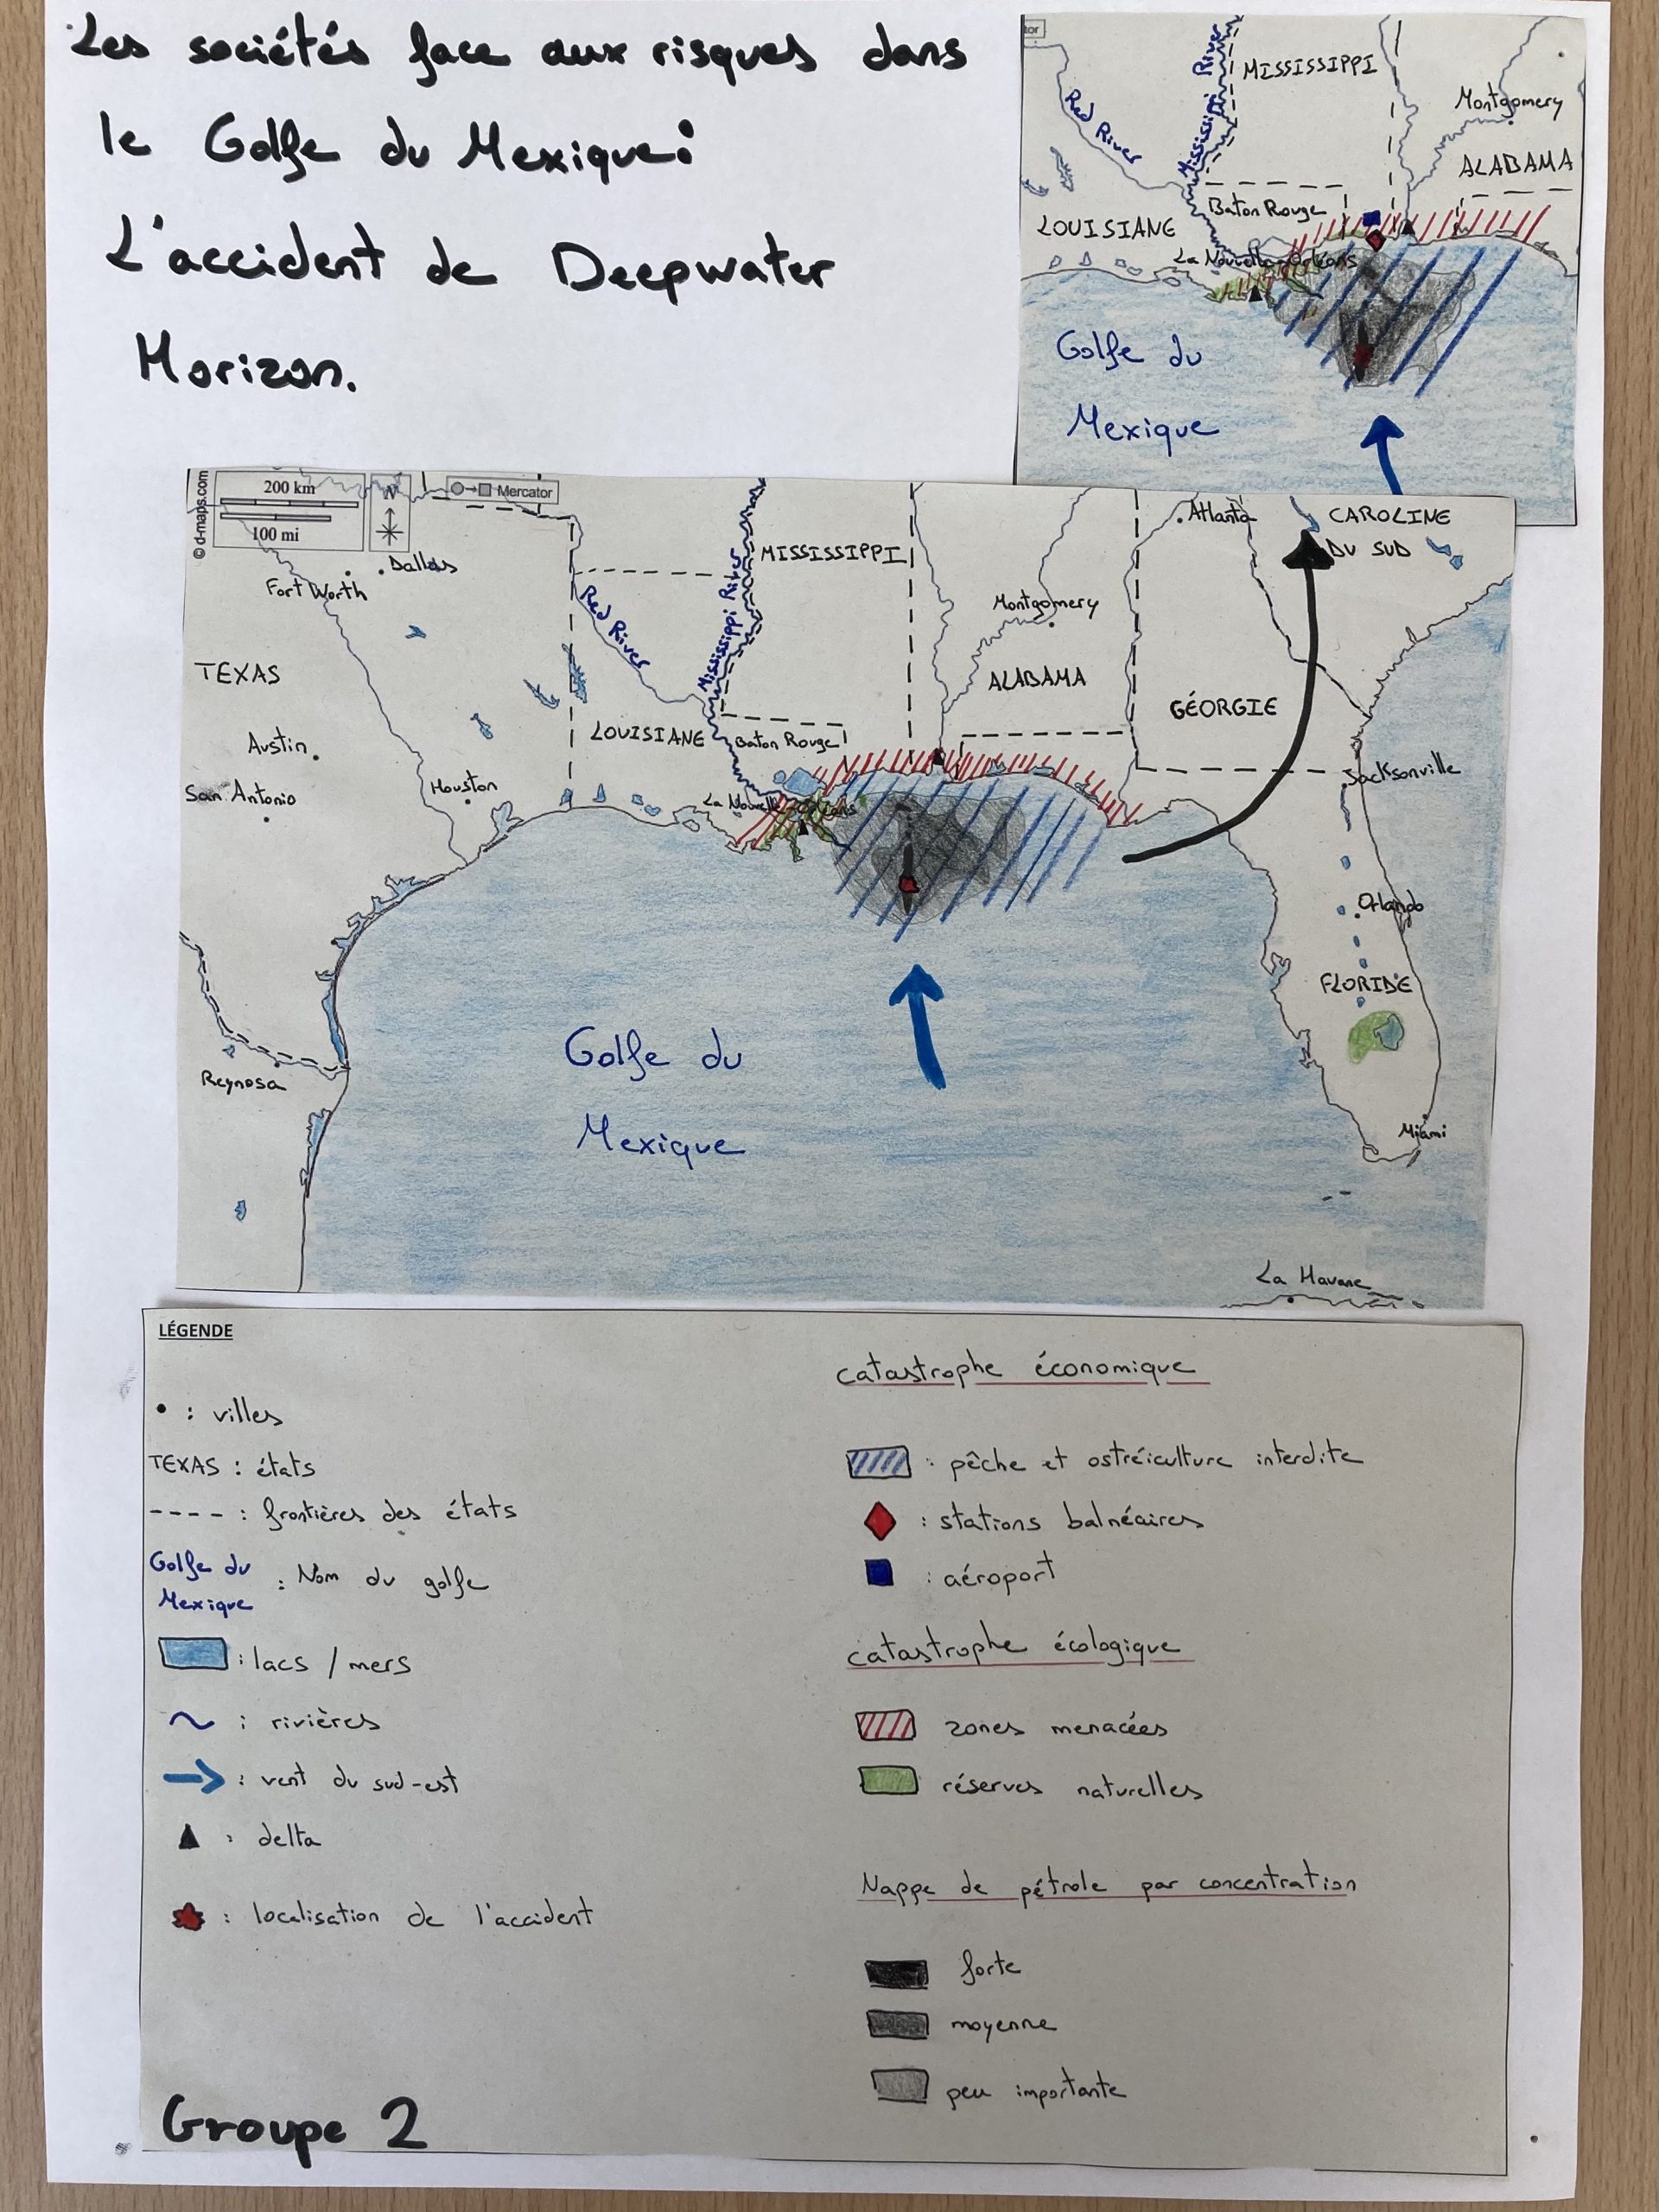 Les sociétés face aux risques dans
le Golfe du Mexique:
L'accident de Deepwater
Horizon.
tor
Mississippi River
MISSISSIPPI
Red River
Montgomery
ALABAMA
Baton Rouge
LOUISIANE
La Nouvelle-Orléans
Golfe du
Mexique
© d-maps.com
200 km
100 mi
N
Mercator
Atlanta
CAROLINE
DU SUD
Dallas
Fort Worth
MISSISSIPPI
Mississippi River
Red River
Montgomery
TEXAS
ALABAMA
GÉORGIE
LOUISIANE
Baton Rouge
Austin
Jacksonville
San Antonio
Houston
La Nouvelle-Orléans
Orlando
FLORIDE
Golfe du
Mexique
Reynosa
Miami
La Havane
LÉGENDE
: villes
TEXAS : états
---- : frontières des états
Golfe du
Mexique
: Nom du golfe
: lacs / mers
: rivières
: vent du sud-est
: delta
: localisation de l'accident
catastrophe économique
: pêche et ostréiculture interdite
: stations balnéaires
: aéroport
catastrophe écologique
zones menacées
réserves naturelles
Nappe de pétrole par concentration
forte
moyenne
peu importante
Groupe 2